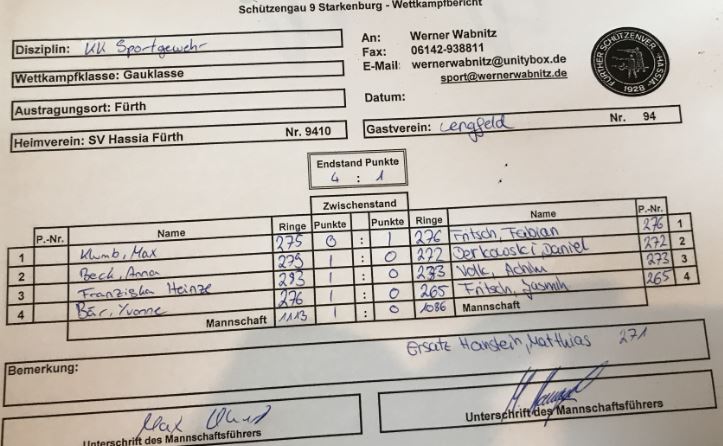 Schützengau 9 Starkenburg - Wettkampfbericht
Disziplin: KK Sportgewehr
An: Werner Wabnitz
Fax: 06142-938811
E-Mail: wernerwabnitz@unitybox.de
sport@wernerwabnitz.de
Wettkampfklasse: Gauklasse
Austragungsort: Fürth
Datum:
FÜRTHER SCHÜTZENVER. "HASSIA" 1928
Heimverein: SV Hassia Fürth Nr. 9410
Gastverein: Lengfeld Nr. 94
Endstand Punkte
4 : 1
Zwischenstand
P.-Nr. Name Ringe Punkte Punkte Ringe Name P.-Nr.
1 Klumb, Max 275 0 : 1 276 Fritsch, Fabian 276 1
2 Beck, Anna 279 1 : 0 272 Derkowski, Daniel 272 2
3 Franziska Heinze 283 1 : 0 273 Volk, Achim 273 3
4 Bär, Yvonne 276 1 : 0 265 Fritsch, Jasmin 265 4
Mannschaft 1113 1 : 0 1086 Mannschaft
Ersatz Hanstein, Matthias 271
Bemerkung:
Max
Unterschrift des Mannschaftsführers
Unterschrift des Mannschaftsführers